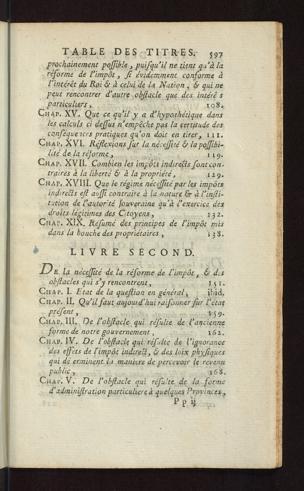 TABLE DES TITRES. 597
prochainement possible, puisqu'il ne tient qu'à la
réforme de l'impôt, si évidemment conforme à
l'intérêt du Roi & à celui de la Nation, & qui ne
peut rencontrer d'autre obstacle que des intérêts
particuliers, 108.
CHAP. XV. Que ce qu'il y a d'hypothétique dans
les calculs ci dessus n'empêche pas la certitude des
conséquences pratiques qu'on doit en tirer, 111.
CHAP. XVI. Réflexions sur la nécessité & la possibi-
lité de la réforme, 119.
CHAP. XVII. Combien les impôts indirects sont con-
traires à la liberté & à la propriété, 129.
CHAP. XVIII. Que le régime nécessité par les impôts
indirects est aussi contraire à la nature & à l'insti-
tution de l'autorité souveraine qu'à l'exercice des
droits légitimes des Citoyens, 132.
CHAP. XIX. Résumé des principes de l'impôt mis
dans la bouche des propriétaires, 138.
LIVRE SECOND.
DE la nécessité de la réforme de l'impôt, & des
obstacles qui s'y rencontrent, 151.
CHAP. I. Etat de la question en général, ibid.
CHAP. II. Qu'il faut aujourd'hui raisonner sur l'état
présent, 159.
CHAP. III. De l'obstacle qui résulte de l'ancienne
forme de notre gouvernement, 162.
CHAP. IV. De l'obstacle qui résulte de l'ignorance
des effets de l'impôt indirect, & des loix physiques
qui déterminent la maniere de percevoir le revenu
public, 168.
CHAP. V. De l'obstacle qui résulte de la forme
d'administration particuliere à quelques Provinces,
P p ij